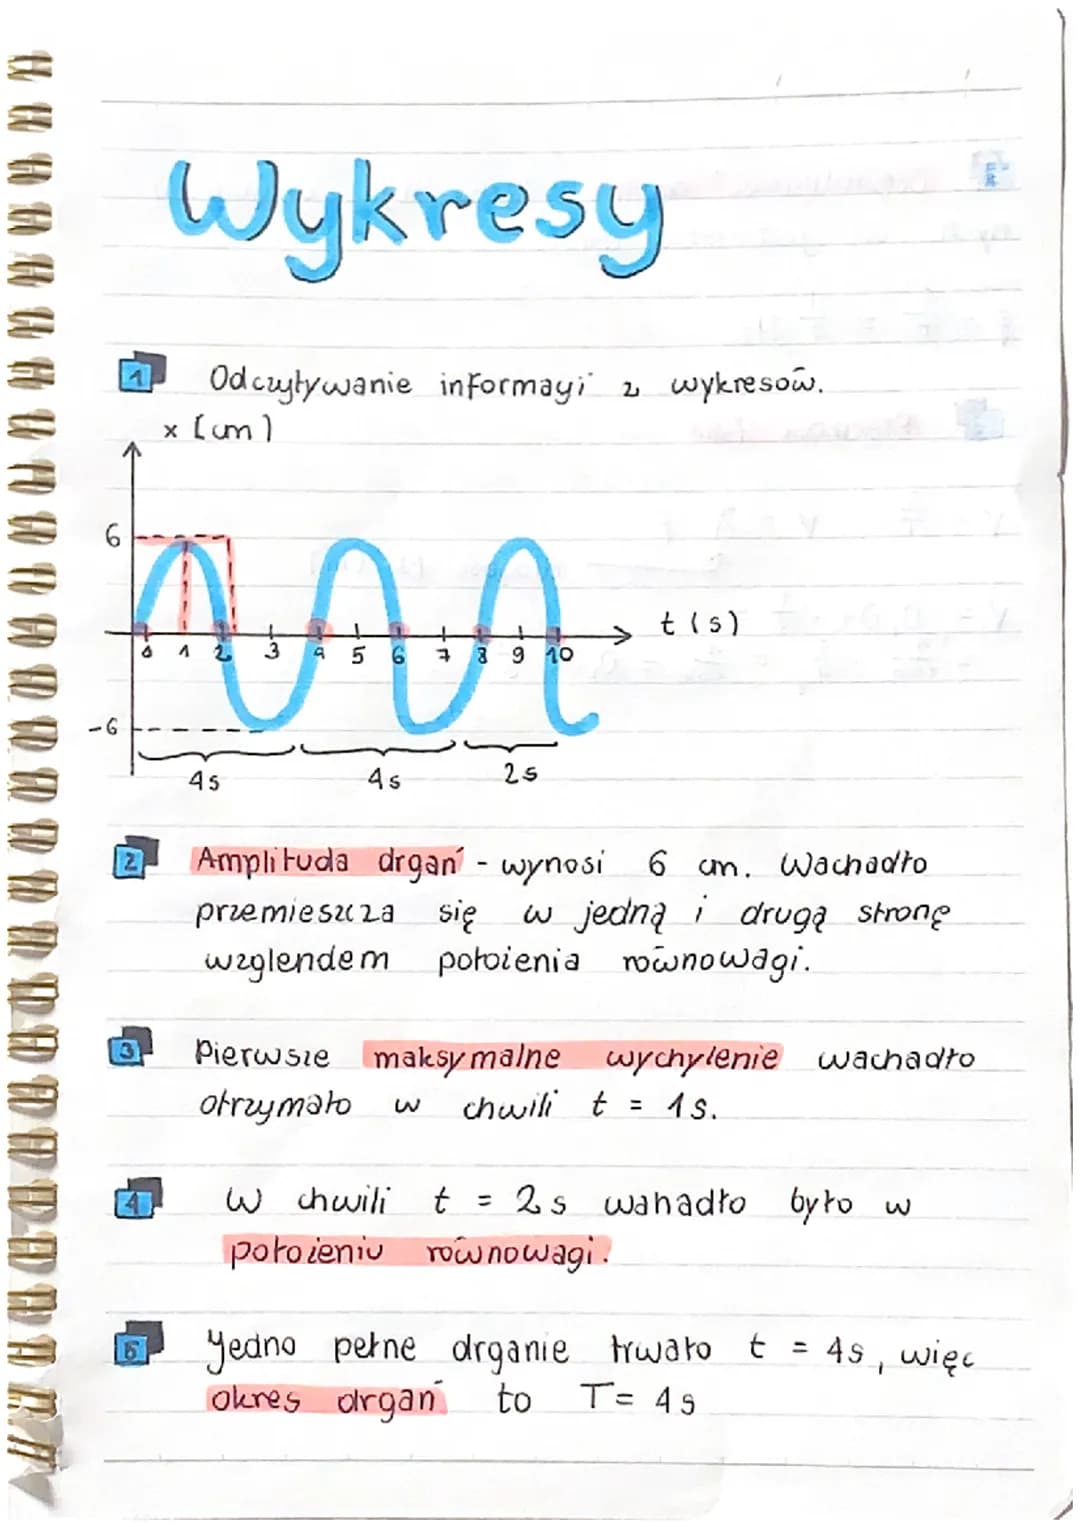 Wykresy
1 Odczytywanie informacyi z wykresów.
x [cm]
6
t (s)
0 1 2 3 4 5 6 7 8 9 10
-6
4s 4s 2s
2 Amplituda drgań - wynosi 6 cm. Wachadło
przemieszcza się w jedną i drugą stronę
wzglendem położenia równowagi.
3 Pierwsze maksymalne wychylenie wachadło
otrzymało w chwili t = 1s.
4 W chwili t = 2s wahadło było w
położeniu równowagi.
5 Jedno pełne drganie trwało t = 4s, więc
okres drgań to T= 4s